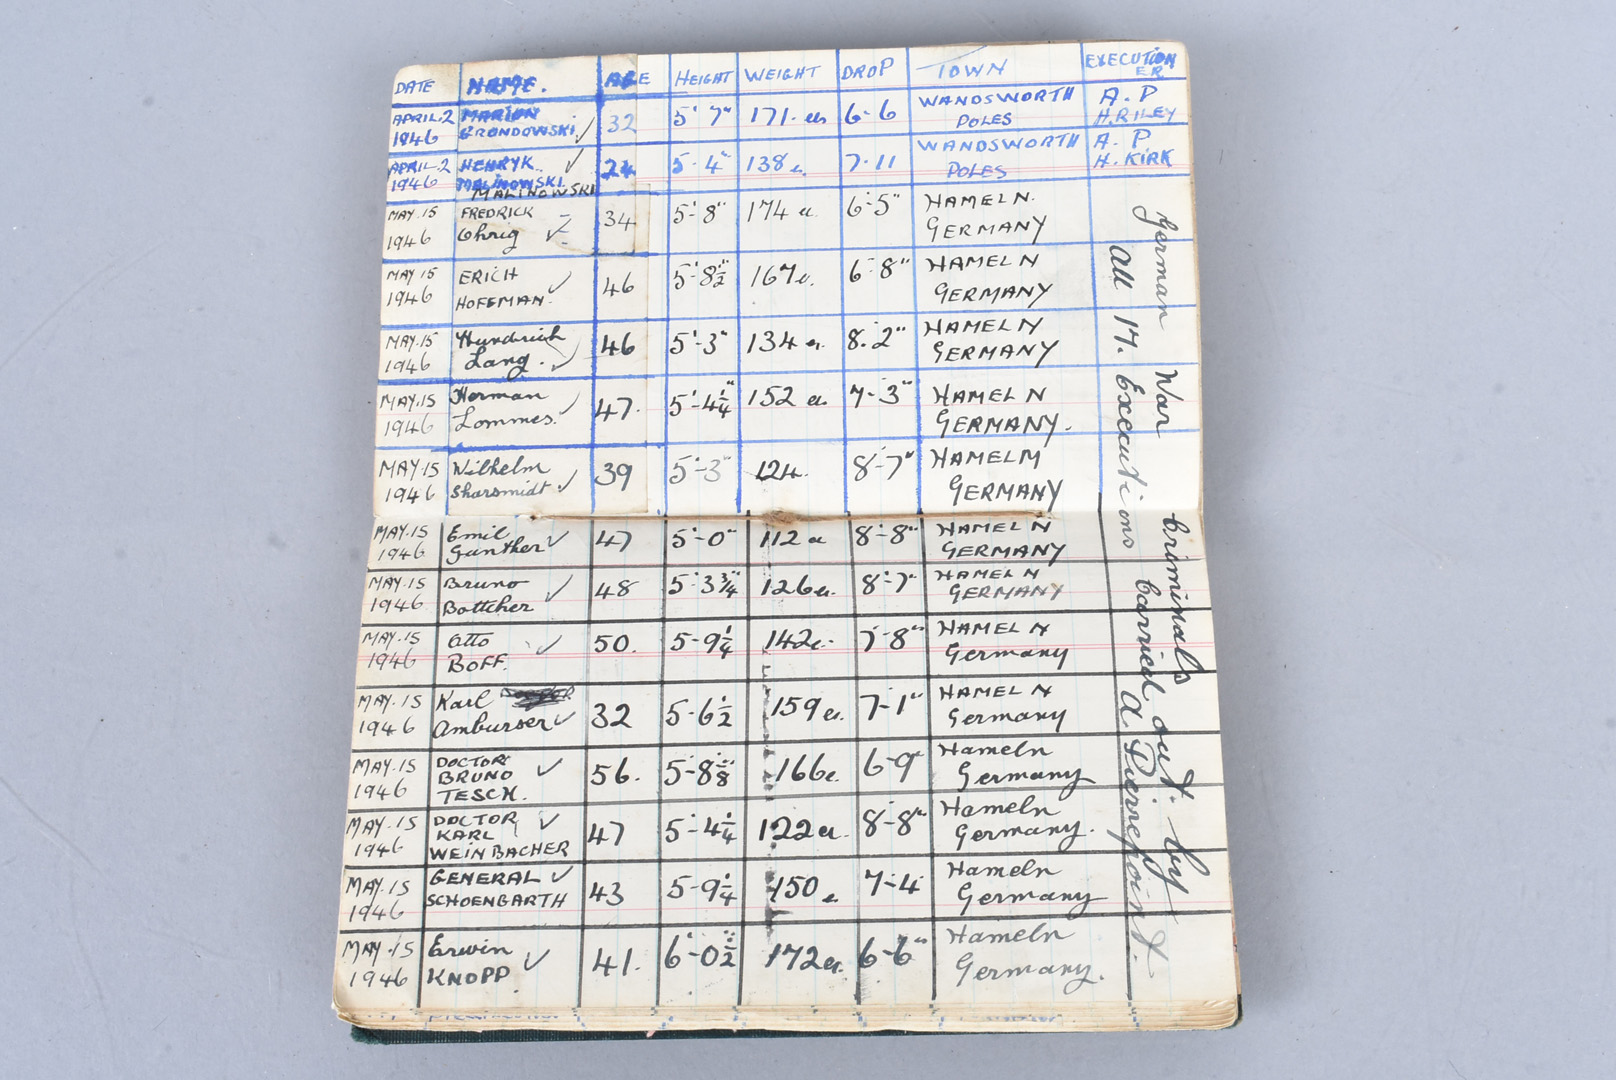 DATE NAME. AGE HEIGHT WEIGHT DROP TOWN EXECUTION
ER
APRIL.2 MARION 32 5' 7" 171. 6-6 WANDSWORTH A. P
1946 GRONDOWSKI POLES H. RILEY
APRIL.2 HENRYK 24 5-4" 138 7-11 WANDSWORTH A. P
1946 MALINOWSKI POLES H. KIRK
MALINOWSKI
MAY.15 FREDRICK 34 5'-8" 174 6-5" HAMELN.
1946 Ohrig GERMANY
MAY 15 ERICH 46 5'-8½" 167 6-8" HAMELN
1946 HOFFMAN. GERMANY
MAY.15 46 5'-3" 134 8.2" HAMELN
1946 Lang. GERMANY
MAY.15 Herman 47. 5'-4¼" 152 7-3" HAMELN
1946 Lommes. GERMANY.
MAY 15 Wilhelm 39 5'-3" 124. 8'-7" HAMELN
1946 Sharsmidt. GERMANY
MAY.15 Emil 47 5'-0" 112 8-8" HAMELN
1946 Gunther GERMANY
MAY.15 Bruno 48 5'-3¾" 126 8'-7" HAMELN
1946 Bottcher GERMANY
MAY.15 Otto 50. 5-9¼ 142 7-8" HAMELN
1946 BOFF. Germany
MAY.15 Karl 32 5-6½ 159 7-1" HAMELN
1946 Amburser Germany
MAY.15 DOCTOR 56. 5-8⅛" 166 6-9" Hameln
1946 BRUNO Germany
TESCH.
MAY.15 DOCTOR 47 5'-4¼ 122 8-8" Hameln
1946 KARL Germany.
WEINBACHER
MAY.15 GENERAL 43 5-9¼ 150 7-4 Hameln
1946 SCHOENGARTH Germany
MAY.15 Erwin 41. 6'-0½" 172 6-6" Hameln
1946 KNOPP Germany.
German War Criminals
All 17. Executions Carried out. by
A. Pierrepoint.